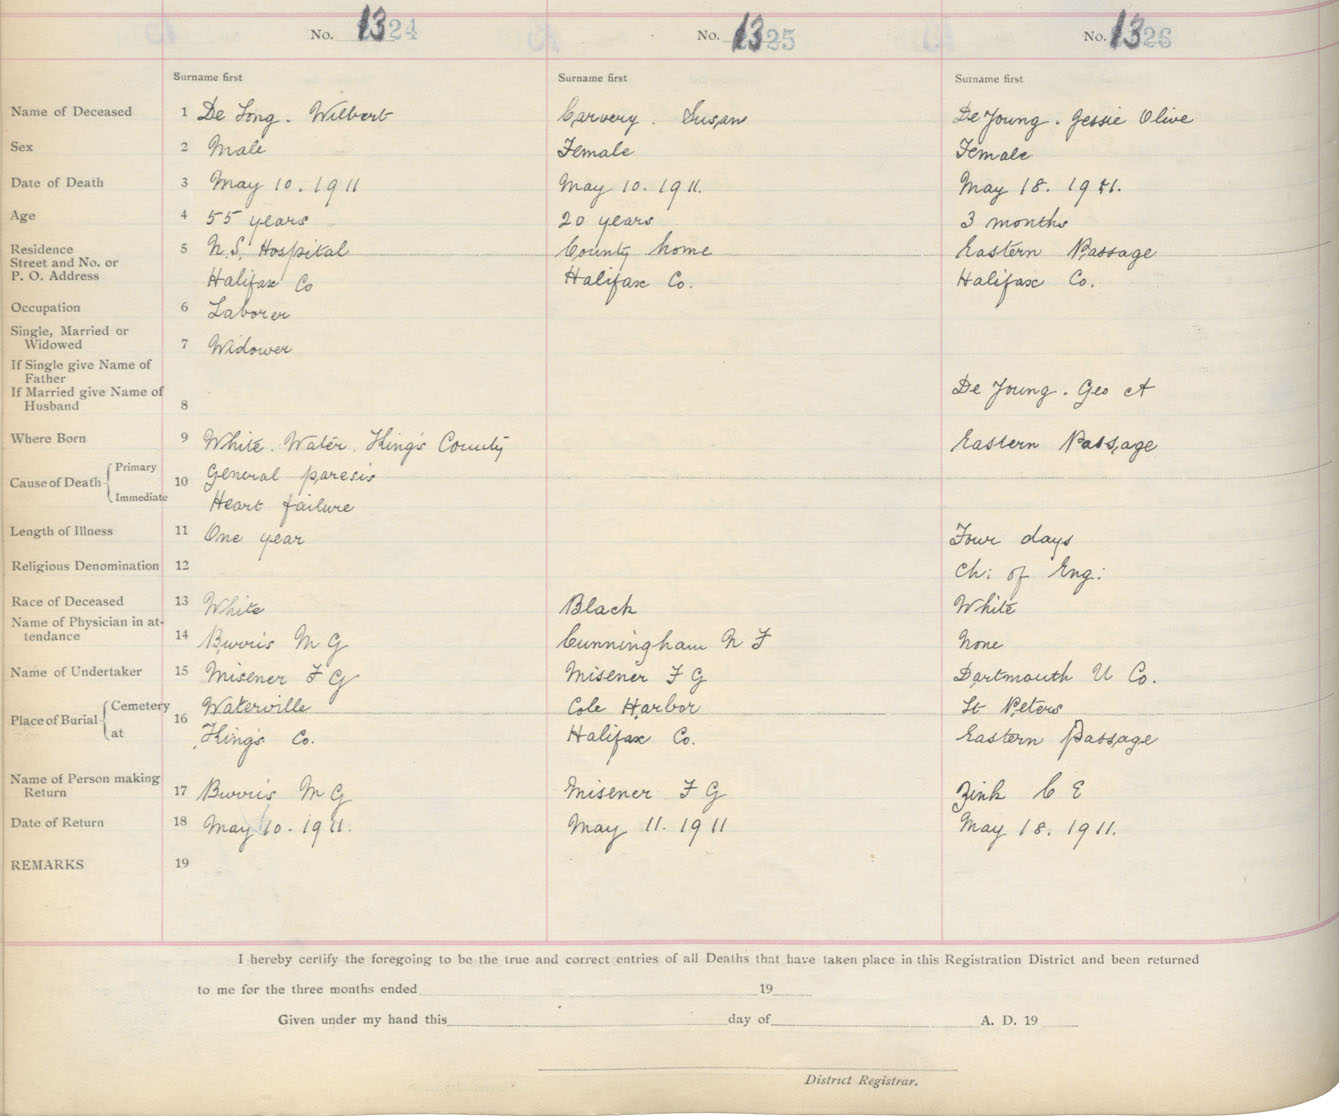 No. 1324 No. 1325 No. 1326
Surname first Surname first Surname first
Name of Deceased 1 De Long. Wilbert Carvery. Susan De Young. Jessie Olive
Sex 2 Male Female Female
Date of Death 3 May 10. 1911 May 10. 1911. May 18. 1911.
Age 4 55 years 20 years 3 months
Residence 5 N.S. Hospital County home Eastern Passage
Street and No. or
P. O. Address Halifax Co Halifax Co. Halifax Co.
Occupation 6 Laborer
Single, Married or
Widowed 7 Widower
If Single give Name of
Father
If Married give Name of De Young. Geo A
Husband 8
Where Born 9 White. Water. King's County Eastern Passage
Cause of Death Primary 10 General paresis
Immediate Heart failure
Length of Illness 11 One year Four days
Religious Denomination 12 Ch: of Eng:
Race of Deceased 13 White Black White
Name of Physician in at-
tendance 14 Burris M G Cunningham N F None
Name of Undertaker 15 Misener F G Misener F G Dartmouth U Co.
Place of Burial Cemetery 16 Waterville Cole Harbor St Peters
at King's Co. Halifax Co. Eastern Passage
Name of Person making
Return 17 Burris M G Misener F G Zink C E
Date of Return 18 May 10. 1911. May 11. 1911 May 18. 1911.
REMARKS 19
I hereby certify the foregoing to be the true and correct entries of all Deaths that have taken place in this Registration District and been returned
to me for the three months ended 19
Given under my hand this day of A. D. 19
District Registrar.